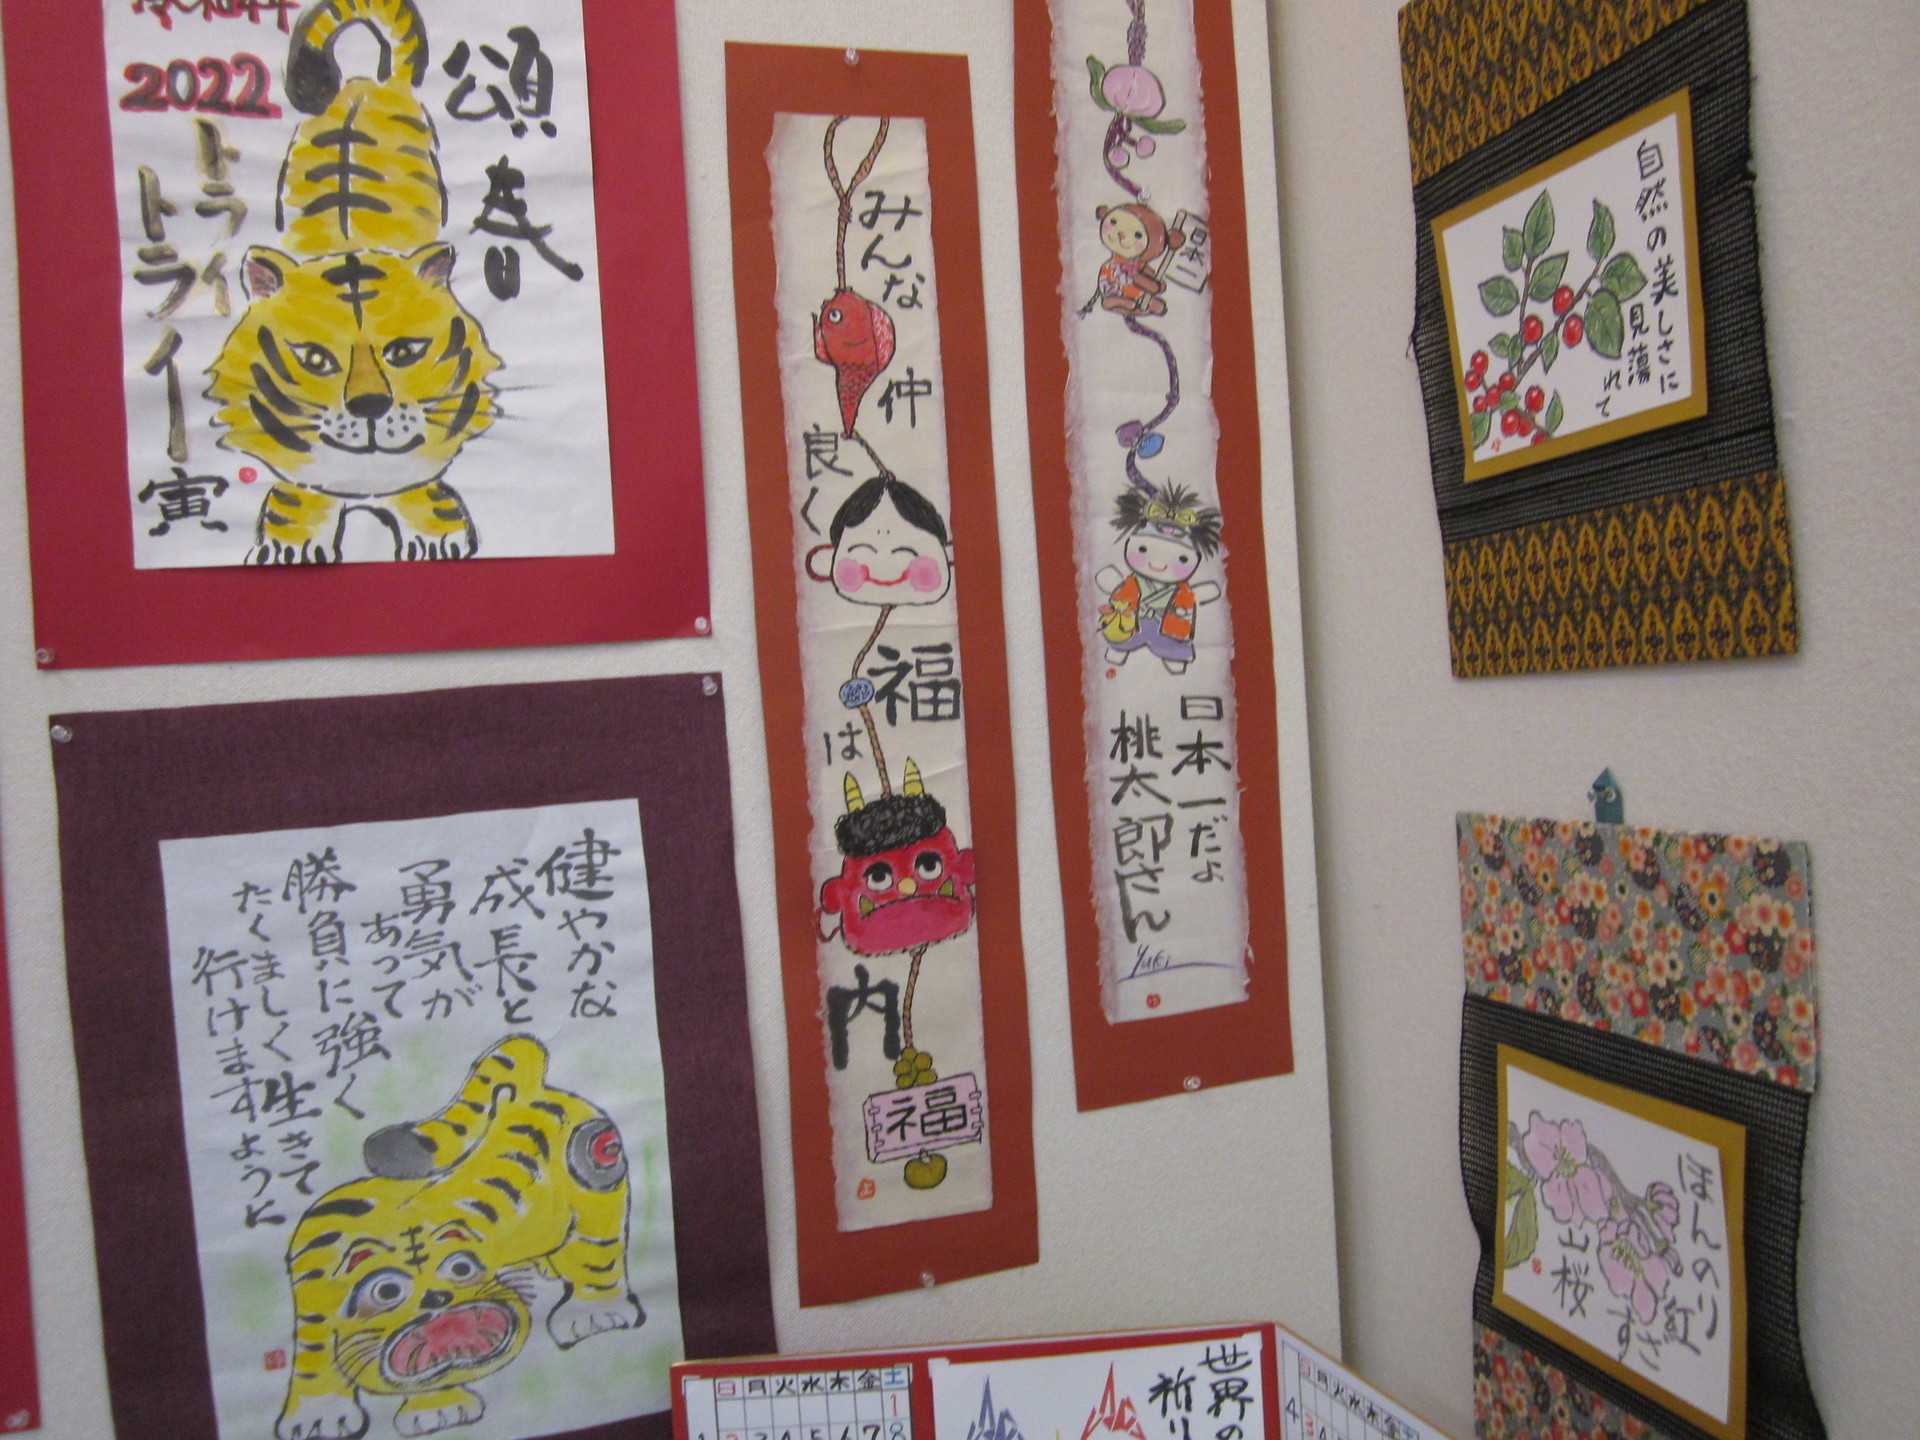 令和四年
2022
頌春
トライ
トライ
寅
健やかな
成長と
勇気が
あって
勝負に強く
たくましく生きて
行けますように
みんな
仲
良く
福
は
内
福
日本一
日本一だよ
桃太郎さん
Yuki
自然の美しさに
見蕩れて
ほんのり
紅さす
山桜
日月火水木金土
1
2 3 4 5 6 7 8
世界の
祈り
4
日月火水木金土